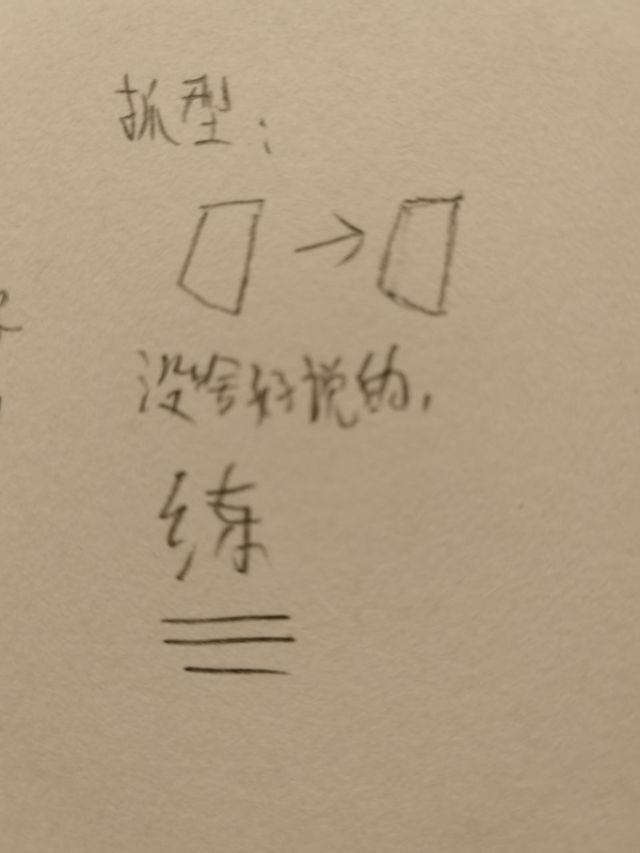 抓型：
没啥好说的，
练